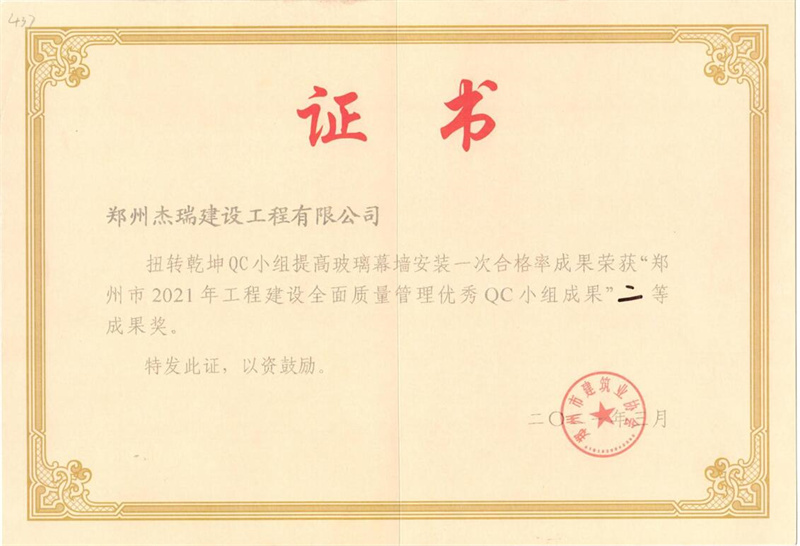 437
证书
郑州杰瑞建设工程有限公司
扭转乾坤QC小组提高玻璃幕墙安装一次合格率成果荣获“郑
州市2021年工程建设全面质量管理优秀QC小组成果”二等
成果奖。
特发此证，以资鼓励。
二〇二一年三月
郑州市建筑业协会